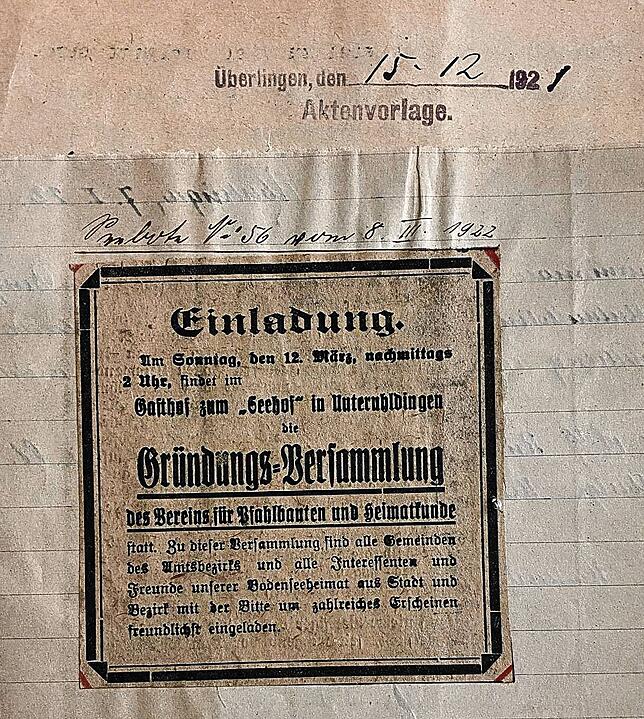 Überlingen, den 15. 12 1921
Aktenvorlage.
Seebote No 56 vom 8. III. 1922
Einladung.
Am Sonntag, den 12. März, nachmittags
2 Uhr, findet im
Gasthof zum „Seehof“ in Unteruhldingen
die
Gründungs-Versammlung
des Vereins für Pfahlbauten und Heimatkunde
statt. Zu dieser Versammlung sind alle Gemeinden
des Amtsbezirks und alle Interessenten und
Freunde unserer Bodenseeheimat aus Stadt und
Bezirk mit der Bitte um zahlreiches Erscheinen
freundlichst eingeladen.